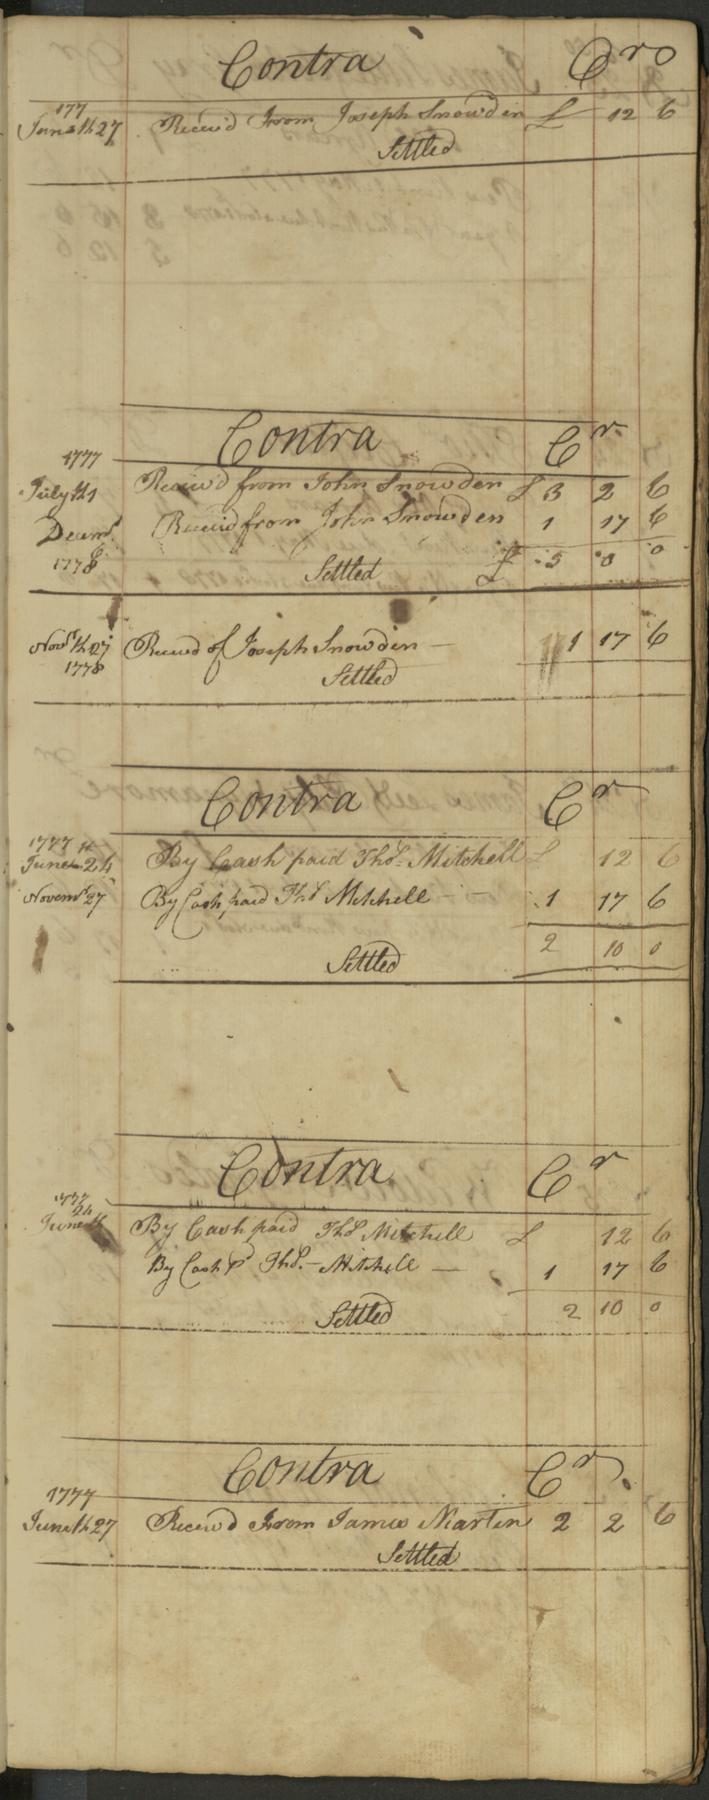 Contra Cro
177
June th 27 Receiv'd From Joseph Snowden £ 12 6
Settled
Contra Cr
1777
July th 1 Receiv'd from John Snowden £ 3 2 6
Decemr Receiv'd from John Snowden 1 17 6
1778 Settled £ 5 0 0
Novr th 27 Receivd of Joseph Snowden — 1 17 6
1778 Settled
Contra Cr
1777
June th 24 By Cash paid Thos. Mitchell £ 12 6
Novemr 27 By Cash paid Thos Mitchell — — 1 17 6
2 10 0
Settled
Contra Cr
1777
24
June th By Cash paid Thos Mitchell £ 12 6
By Cash pd Thos. – Mitchell — 1 17 6
Settled 2 10 0
Contra Cr
1777
June th 27 Receiv'd From James Martin 2 2 6
Settled